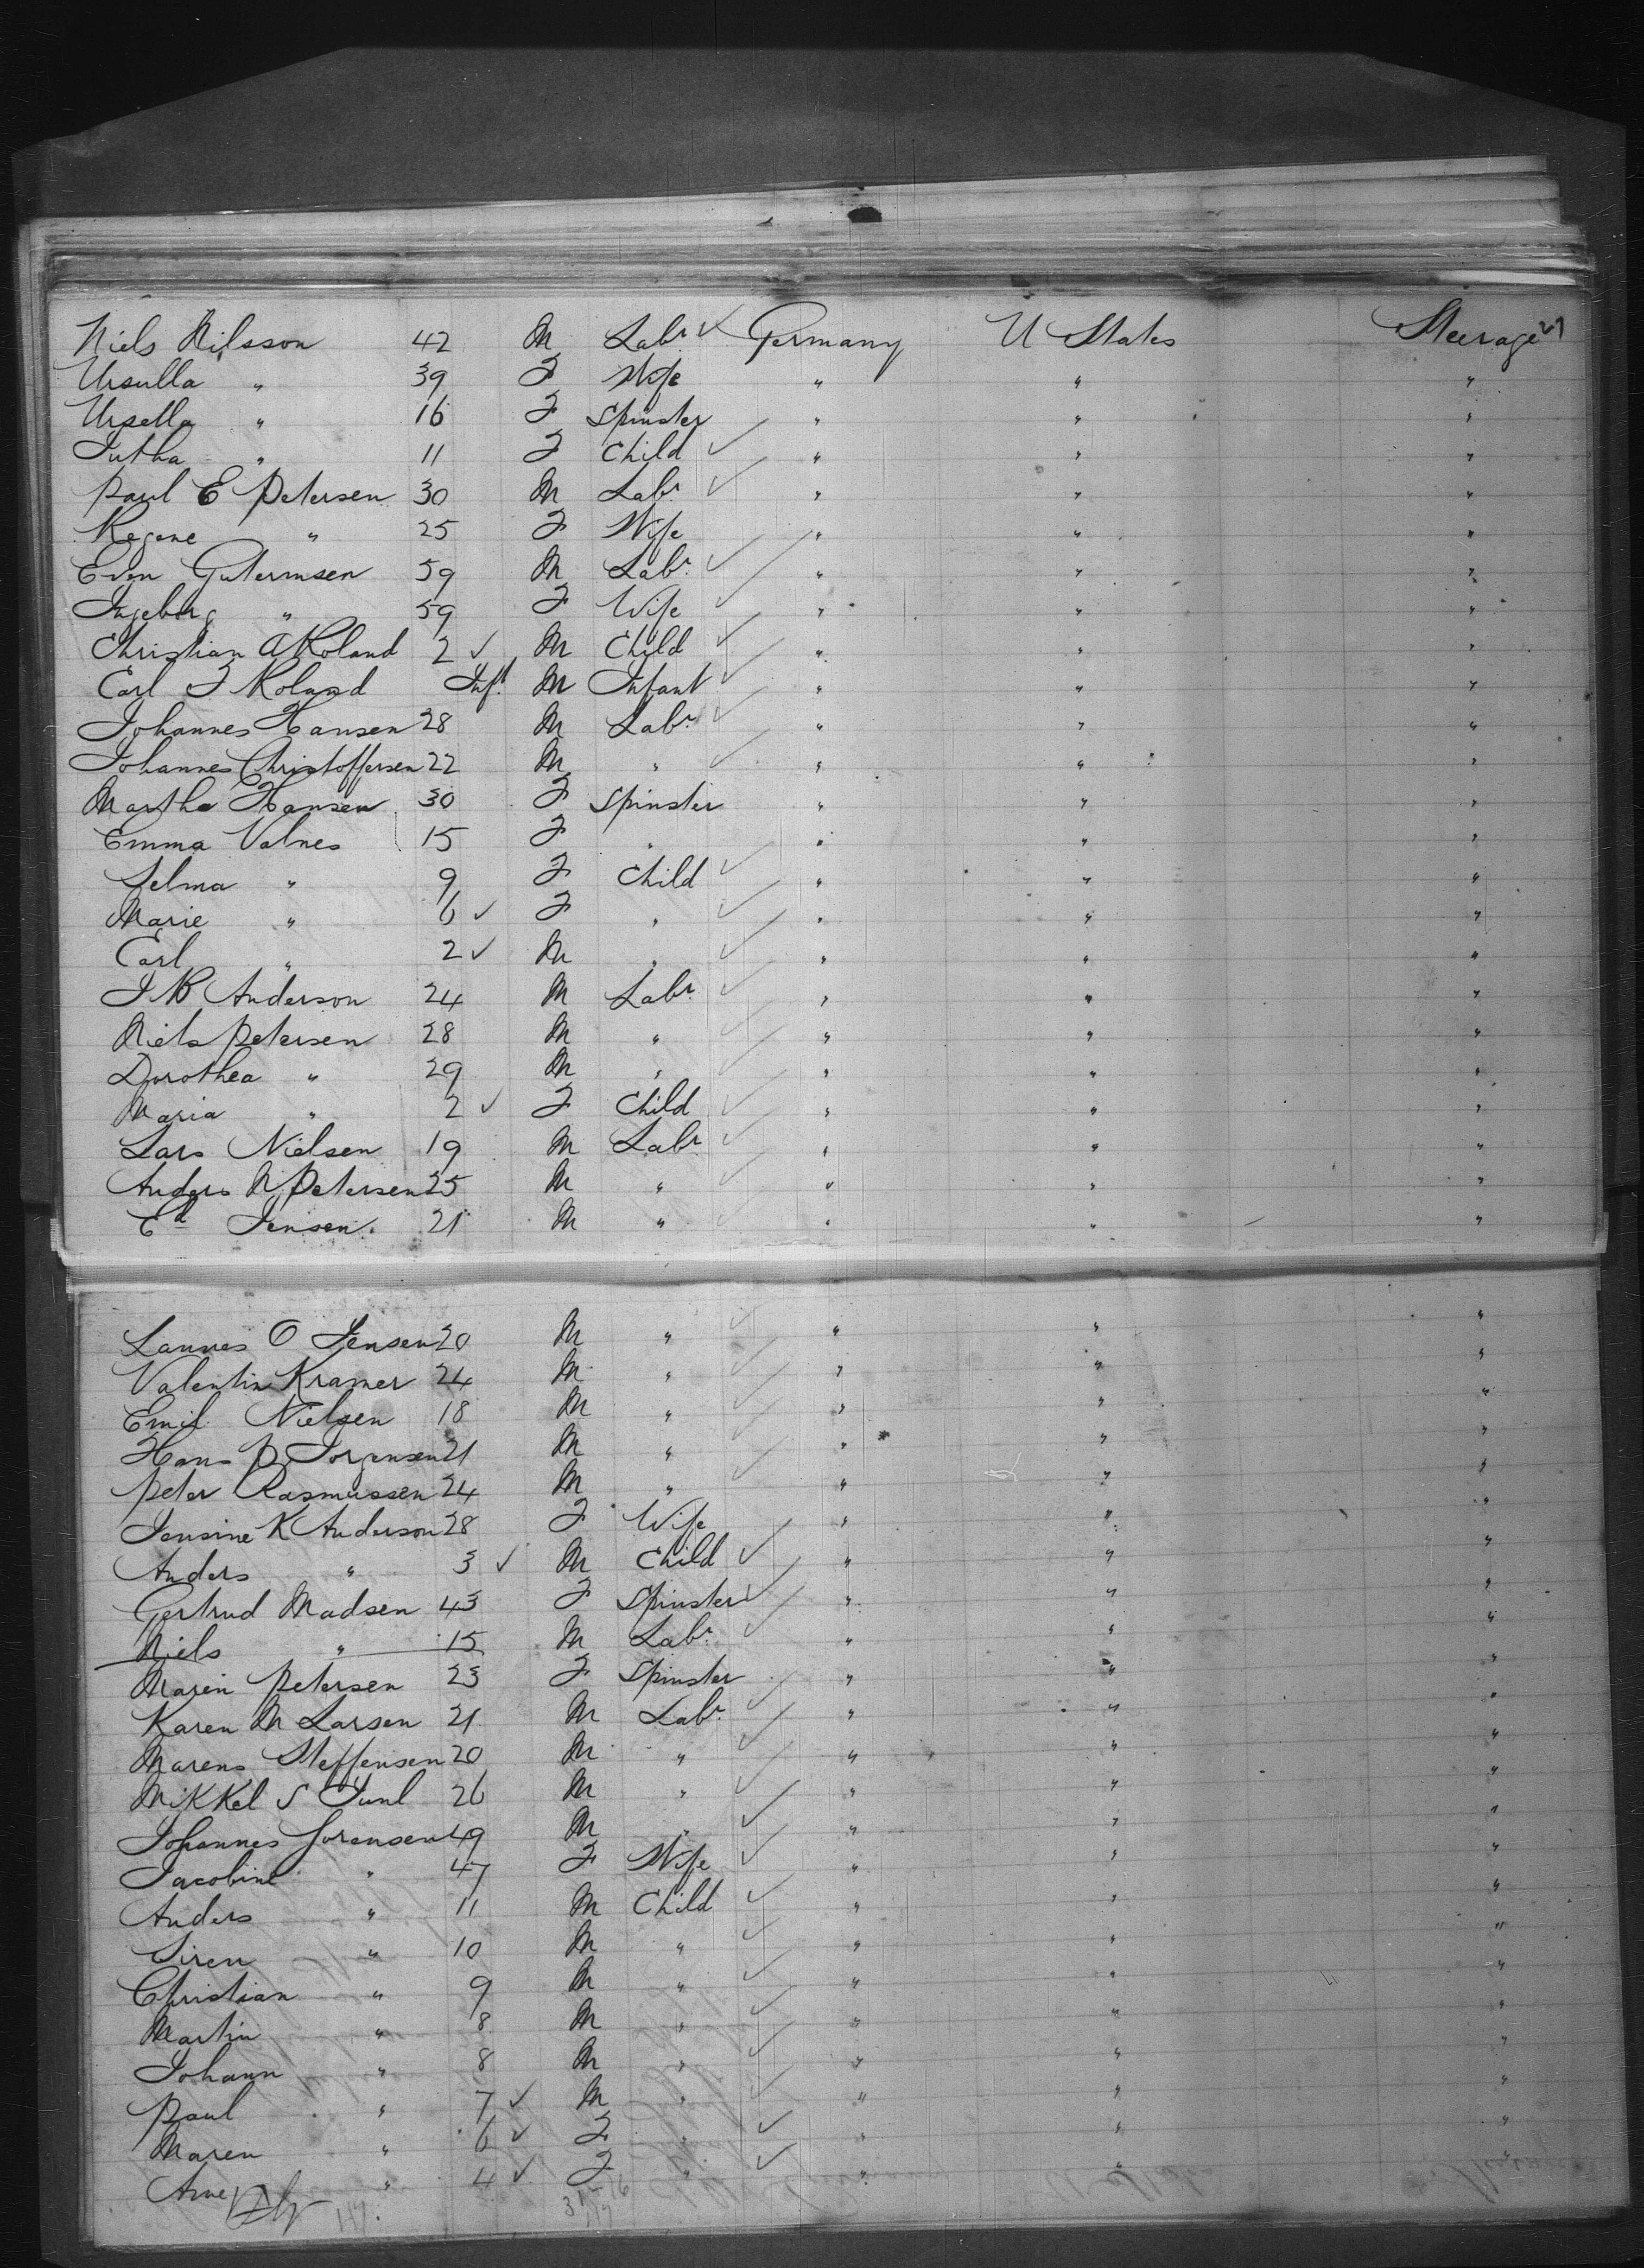 Niels Nilsson 42 M Labr ✓ Germany U States Steerage 27
Ursulla " 39 F Wife " " "
Ursella " 16 F Spinster " " "
Jutha " 11 F Child ✓ " " "
Paul E Petersen 30 M Labr ✓ " " "
Regene " 25 F Wife " " "
Even Gutermsen 59 M Labr ✓ " " "
Ingeborg " 59 F Wife ✓ " " "
Christian A Roland 2 ✓ M Child ✓ " " "
Carl F Roland Inft M Infant ✓ " " "
Johannes Hansen 28 M Labr ✓ " " "
Johannes Christoffersen 22 M " ✓ " " "
Martha Hansen 30 F Spinster " " "
Emma Valnes 15 F " " " "
Selma " 9 F Child ✓ " " "
Marie " 6 ✓ F " ✓ " " "
Carl " 2 ✓ M " ✓ " " "
J N Anderson 24 M Labr ✓ " " "
Niels Petersen 28 M " ✓ " " "
Dorothea " 29 M " ✓ " " "
Maria " 2 ✓ F Child ✓ " " "
Lars Nielsen 19 M Labr ✓ " " "
Anders N Petersen 25 M " ✓ " " "
Ed Jensen 21 M " ✓ " " "
Lannes O Jensen 20 M " ✓ " " "
Valentin Kramer 24 M " ✓ " " "
Emil Nielsen 18 M " ✓ " " "
Hans P Jorgensen 21 M " ✓ " " "
Peter Rasmussen 24 M " ✓ " " "
Jensine K Anderson 28 F Wife " " "
Anders " 3 ✓ M Child ✓ " " "
Gertrud Madsen 43 F Spinster ✓ " " "
Niels " 15 M Labr ✓ " " "
Maren Petersen 23 F Spinster " " "
Karen M Larsen 21 M Labr ✓ " " "
Marens Steffensen 20 M " ✓ " " "
Mikkel S Juul 26 M " ✓ " " "
Johannes Sorensen 49 M " ✓ " " "
Jacobine " 47 F Wife ✓ " " "
Anders " 11 M Child ✓ " " "
Siren " 10 M " ✓ " " "
Christian " 9 M " ✓ " " "
Martin " 8 M " ✓ " " "
Johann " 8 M " ✓ " " "
Paul " 7 ✓ M " ✓ " " "
Maren " 6 ✓ F " ✓ " " "
Arne " 4 ✓ F " ✓ " " "